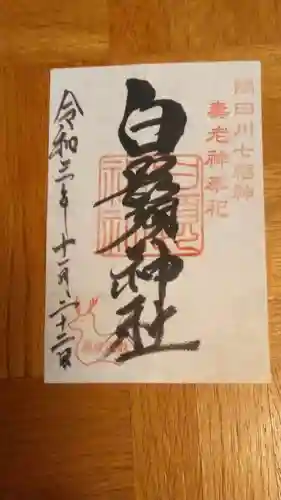 隅田川七福神
寿老神奉祀
白鬚神社
令和三年十一月二十二日